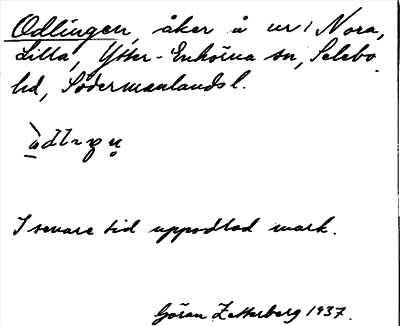 Odlingen, åker å nr 1 Nora,
Lilla, Ytter-Enhörna sn, Selebo
hd, Södermanlands l.
I senare tid uppodlad mark.
Göran Zetterberg 1937.